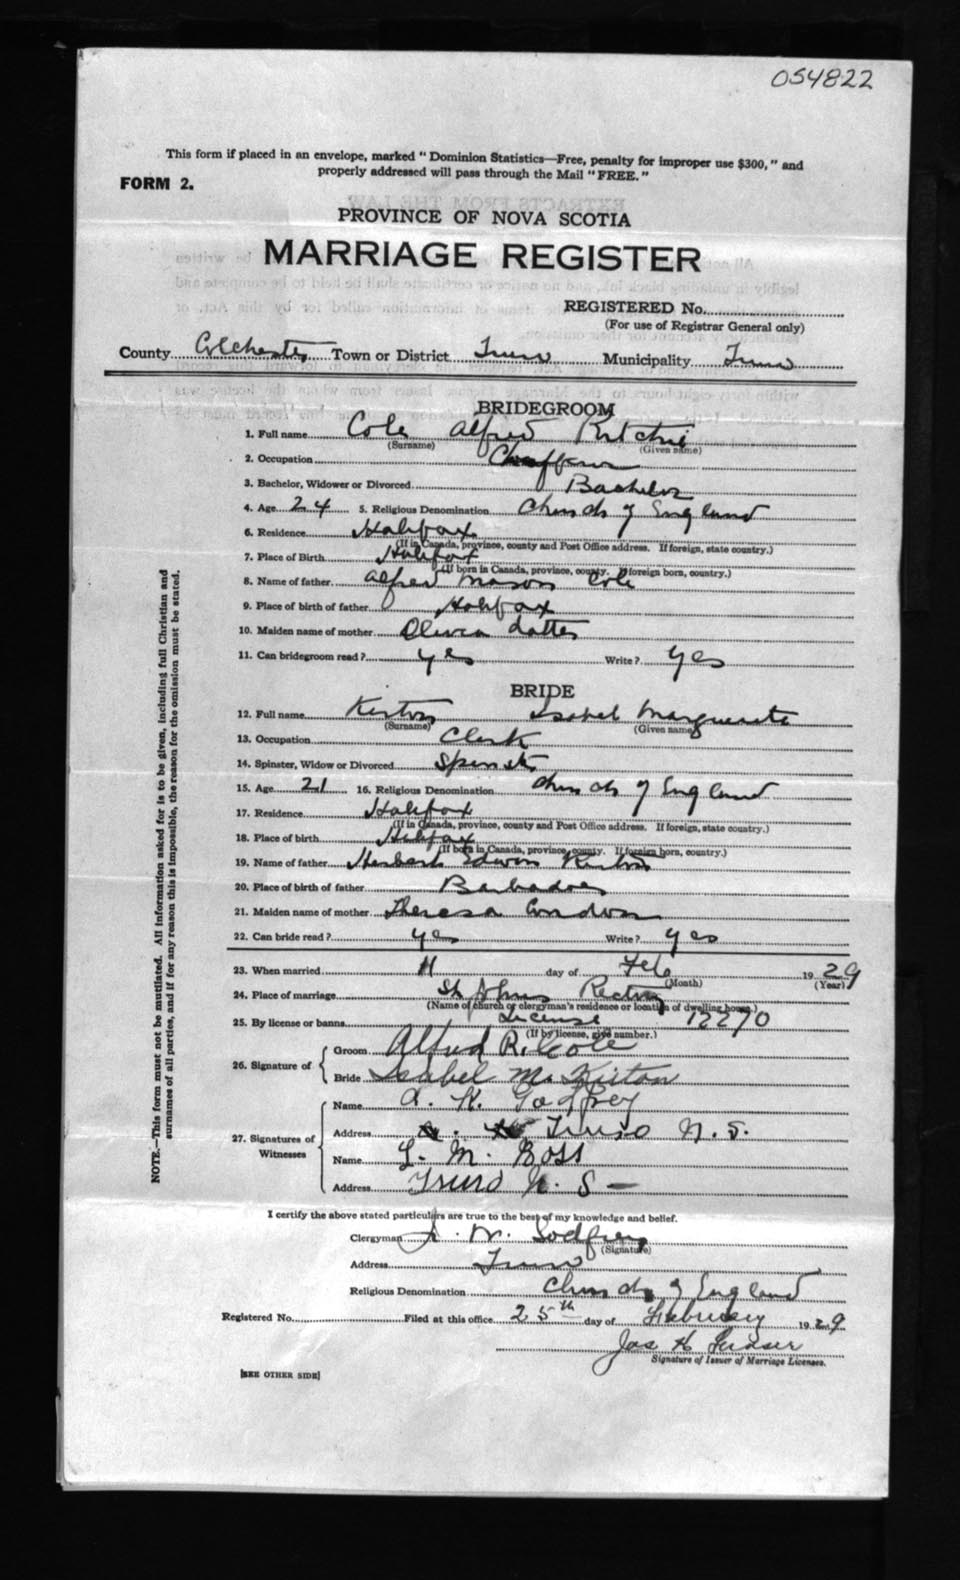 054822
This form if placed in an envelope, marked "Dominion Statistics—Free, penalty for improper use $300," and
properly addressed will pass through the Mail "FREE."
FORM 2.
PROVINCE OF NOVA SCOTIA
MARRIAGE REGISTER
REGISTERED No.
(For use of Registrar General only)
County Colchester Town or District Truro Municipality Truro
BRIDEGROOM
1. Full name Cole Alfred Ritchie
(Surname) (Given name)
2. Occupation Chauffeur
3. Bachelor, Widower or Divorced Bachelor
4. Age 24 5. Religious Denomination Church of England
6. Residence Halifax
(If in Canada, province, county and Post Office address. If foreign, state country.)
7. Place of Birth Halifax
(If born in Canada, province, county. If foreign born, country.)
8. Name of father Alfred Mason Cole
9. Place of birth of father Halifax
10. Maiden name of mother Olivia
11. Can bridegroom read? yes Write? yes
BRIDE
12. Full name Kirton Isabel Marguerite
(Surname) (Given name)
13. Occupation Clerk
14. Spinster, Widow or Divorced Spinster
15. Age 21 16. Religious Denomination Church of England
17. Residence Halifax
(If in Canada, province, county and Post Office address. If foreign, state country.)
18. Place of birth Halifax
(If born in Canada, province, county. If foreign born, country.)
19. Name of father Herbert Edwin Kirton
20. Place of birth of father Barbadoes
21. Maiden name of mother Theresa Condon
22. Can bride read? yes Write? yes
23. When married day of Feb 1929
(Month) (Year)
24. Place of marriage St Johns Rectory
(Name of church or clergyman's residence or location of dwelling house.)
25. By license or banns License 12270
(If by license, give number.)
26. Signature of
Groom Alfred R. Cole
Bride Isabel M. Kirton
27. Signatures of Witnesses
Name A. K. Godfrey
Address Truro N.S.
Name L. M. Ross
Address Truro N. S—
I certify the above stated particulars are true to the best of my knowledge and belief.
Clergyman W. Godfrey
(Signature)
Address Truro
Religious Denomination Church of England
Registered No. Filed at this office 25th day of February 1929
Jas H
Signature of Issuer of Marriage Licenses.
[SEE OTHER SIDE]
NOTE.—This form must not be mutilated. All information asked for is to be given, including full Christian and
surnames of all parties, and if for any reason this is impossible, the reason for the omission must be stated.